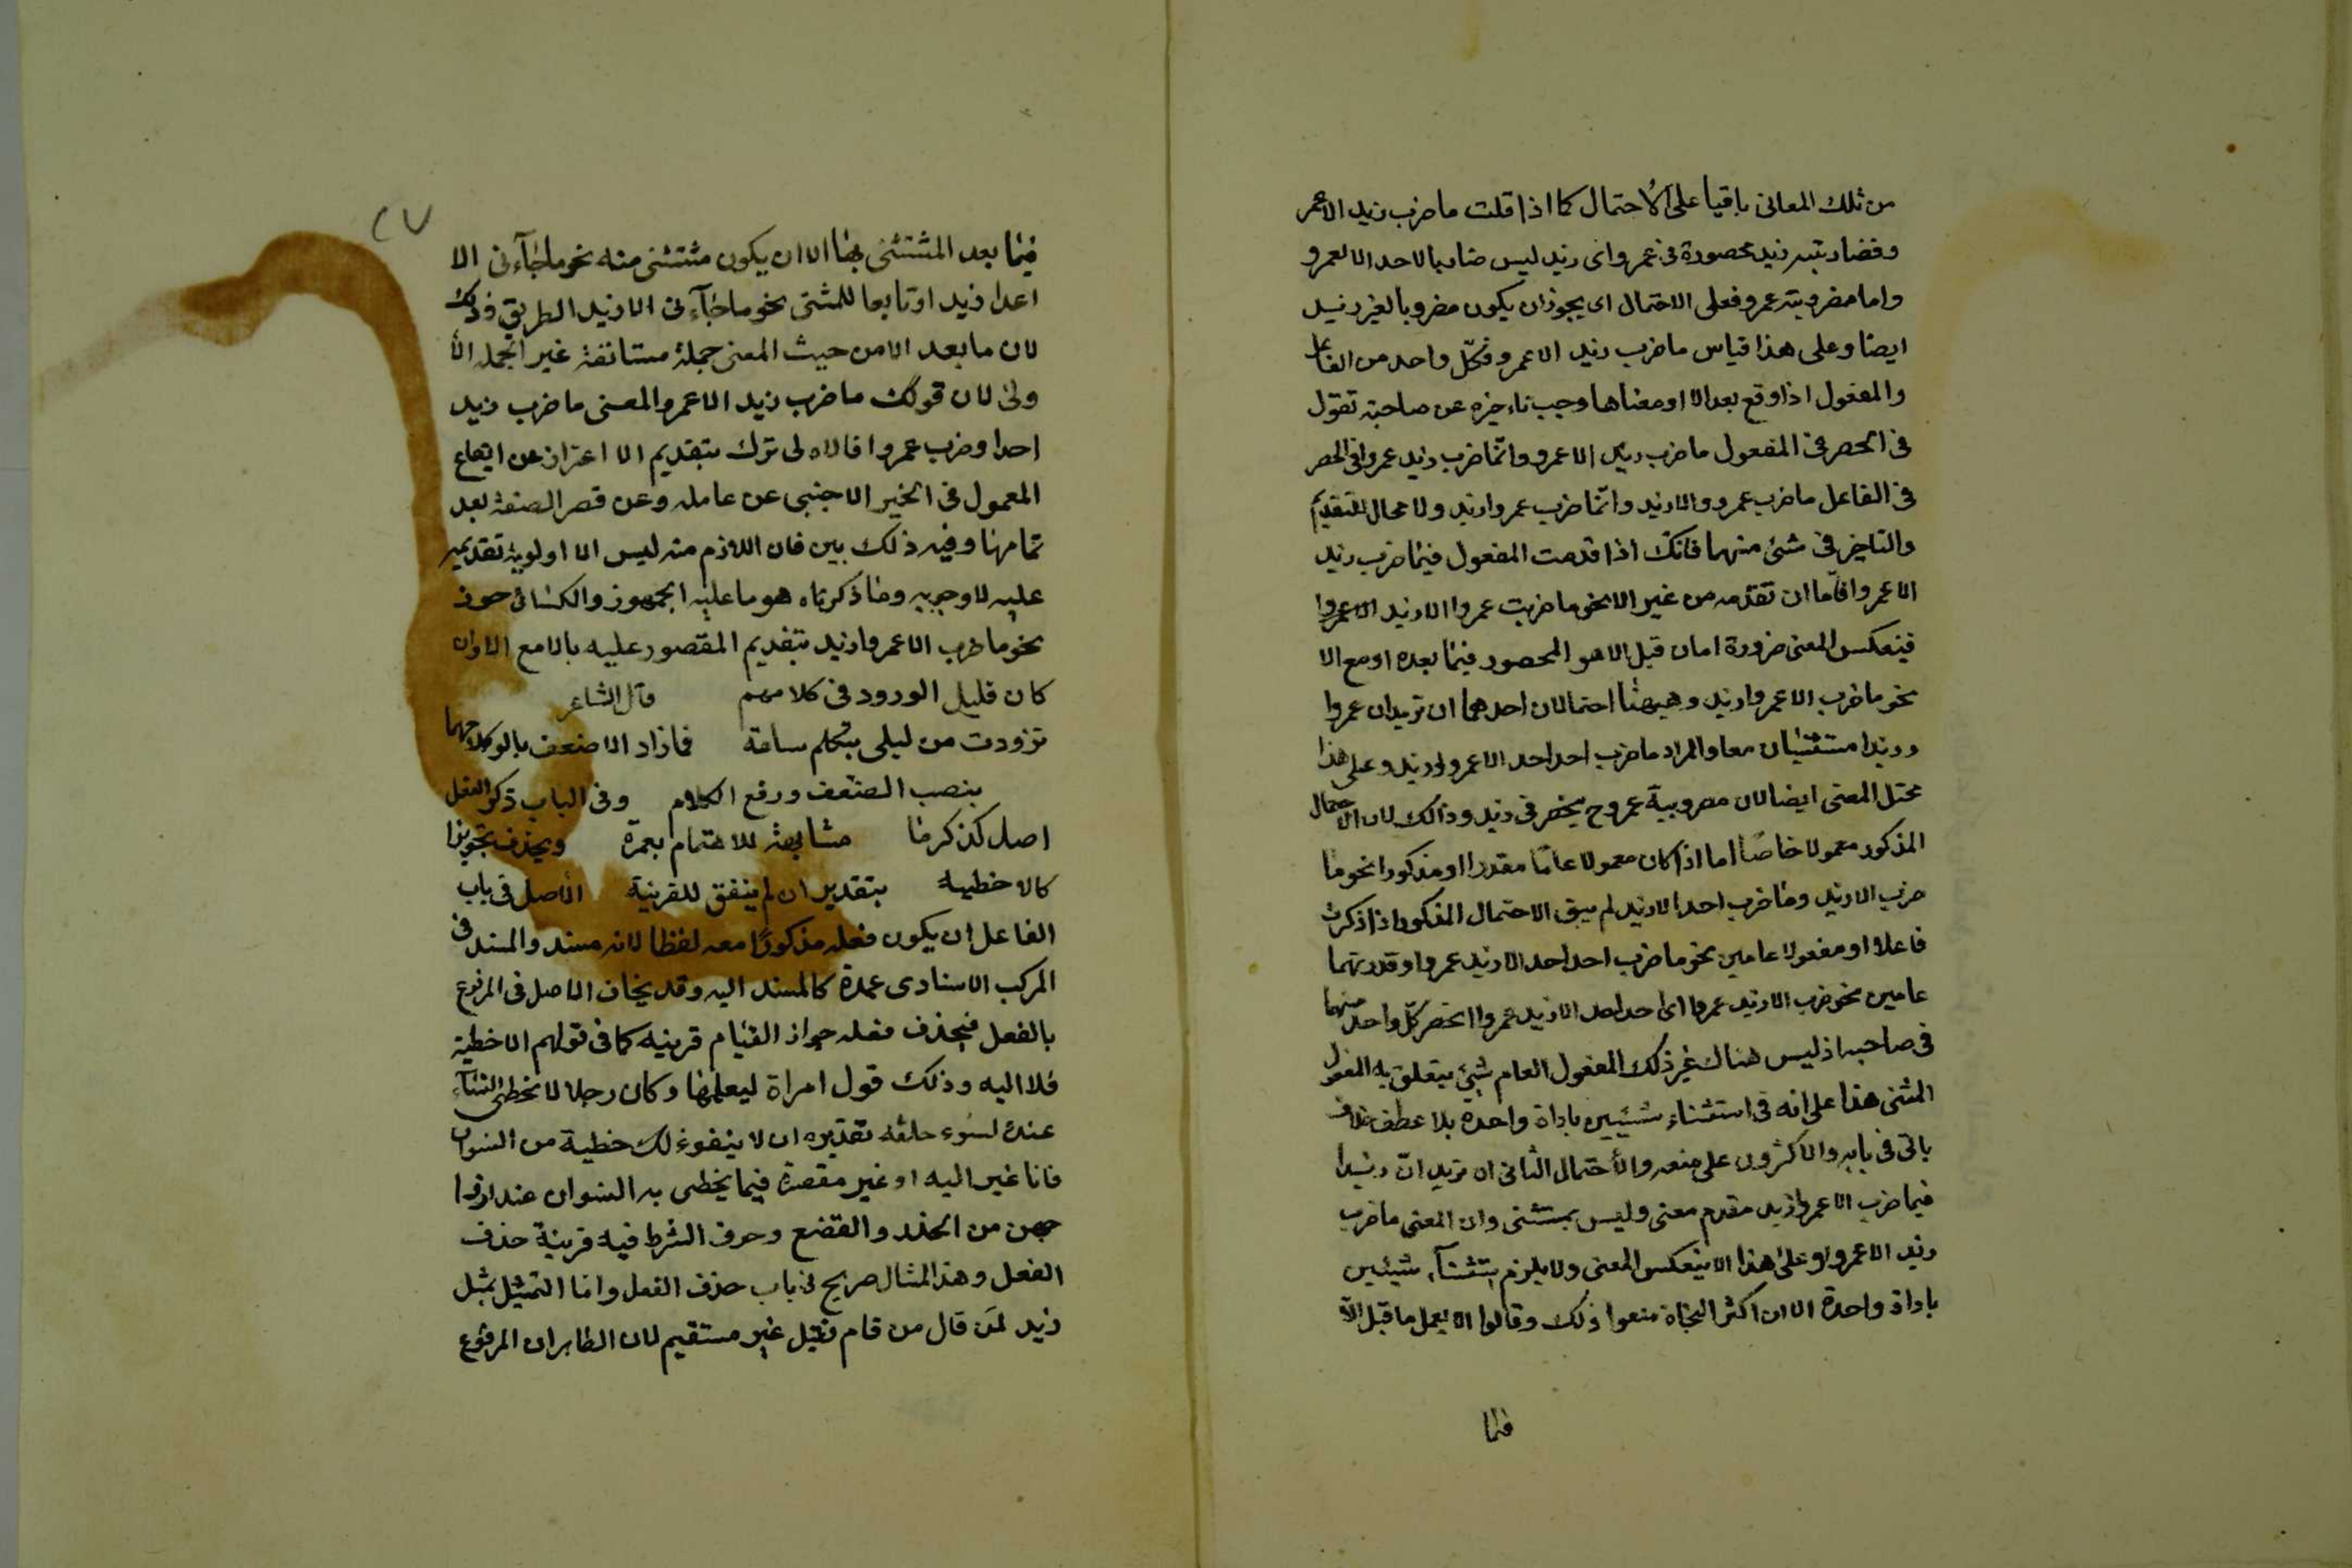 من تلك المعانى باقيا على الاحتمال كما اذا قلت ما ضرب زيد الا عمر
وفضاربته زيد محصورة فى عمرو اى زيد ليس ضاربا لاحد الا لعمرو
واما مضروبية عمرو فعلى الاحتمال اى يجوز ان يكون مضروبا لغير زيد
ايضا وعلى هذا قياس ما ضرب زيد الا عمرو فكل واحد من الفاعل
والمفعول اذا وقع بعد الا او معناها وجب تاءخيره عن صاحبه تقول
فى الحصر فى المفعول ما ضرب زيد الا عمرو وانما ضرب زيد عمروا فى الحصر
فى الفاعل ما ضرب عمرو والا زيد وانما ضرب عمروا زيد ولا مجال للتقديم
والتاخير فى شئ منهما فانك اذا قدمت المفعول فيما ضرب زيد
الا عمروا فاما ان تقدمه من غير الا نحو ما ضربت عمروا الا زيد الا عمروا
فينعكس المعنى ضرورة امان قبل الا هو المحصور فيما بعده او مع الا
نحو ما ضرب الا عمروا زيد وهيهنا احتمالان احدهما ان تريد ان عمروا
وزيدا مستثنيان معا والمراد ما ضرب احد احد الا عمروا وزيد وعلى هذا
محتل المعنى ايضا لان مضروبية عمرو ح ينحصر فى زيد وذالك لان الاحتمال
المذكور معمولا خاصا اما اذا كان معمولا عاما مقدرا او مذكورا نحو ما
ضرب الا زيد وما ضرب احد الا زيد لم يبق الاحتمال المذكور اذا ذكرت
فاعلا او مفعولا عامين نحو ما ضرب احد احد الا زيد عمروا وقدرتهما
عامين نحو ضرب الا زيد عمروا اى احد احد الا زيد عمروا انحصر كل واحد منهما
فى صاحبه اذ ليس هناك غير ذلك المفعول العام شيئ يتعلق به المفعول
المثنى هذا على انه فى استثناء شيئيين باداة واحدة بلا عطف خلاف
ياتى فى بابه والاكثرون على منعه والاحتمال الثانى ان تريد ان زيدا
فيما ضرب الا عمروا زيد مقدم معنى وليس بمستثنى وان المعنى ما ضرب
زيد الا عمروا وعلى هذا لا ينعكس المعنى ولا يلزم ستثناء شيئين
باداة واحدة الا ان اكثر النحاة منعوا ذلك وقالوا لا يعمل ما قبل الا
فيما
٢٧
فيما بعد المستثنى بها الا ان يكون مثتثنى منه نحو ما جآءنى الا
اعدا زيد او تابعا للمثنى نحو ما جآءنى الا زيد الطريق وذلك
لان ما بعد الا من حيث المعنى جملة مستانفة غير الجملة الا
ولى لان قولك ما ضرب زيد الا عمروا المعنى ما ضرب زيد
احدا وضرب عمروا فالاولى ترك بتقديم الا اعتراز عن ايقاع
المعمول فى الخير الاجنبى عن عامله وعن قصر الصفة بعد
تمامها وفيه ذلك بين فان اللازم منه ليس الا اولوية تقديمه
عليه لا وجوبه وما ذكرناه هو ما عليه الجمهور والكسائى جوز
نحو ما ضرب الا عمروا زيد بتقديم المقصور عليه بالا مع الا وان
كان قليل الورود فى كلامهم قال الشاعر
تزودت من ليلى بتكلم ساعة فما زاد الا ضعف بالوكلامهما
بنصب الضعف ورفع الكلام وفى الباب ذكر الفعل
اصل كذكرنا مشابهة للاهتمام بعمرة ويحذف تجويزا
كالا خطيه بتقدير ان لم ينفق للقرينة الاصل فى باب
الفاعل ان يكون فعله مذكورا معه لفظا لانه مسند والمسند فى
المركب الاسنادى عمدة كالمسند اليه وقد يخاف الاصل فى المرفوع
بالفعل فيحذف فعله جواز القيام قرينيه كما فى قولهم الا خطية
فلا اليه وذلك قول امراة ليعلمها وكان رجلا لا تخطى النساء
عنده لسوء خلقه تقديره ان لا ينفوء لك خطية من النسوان
فانا غير اليه او غير مقصرة فيما يخطى به النسوان عند ازوا
جهن من الخذر والقضع وحرف الشرط فيه قرينة حذف
الفعل وهذا المثال صريح فى باب حذف الفعل واما التمثيل بمثل
زيد لمن قال من قام فقيل غير مستقيم لان الظاهر ان المرفوع